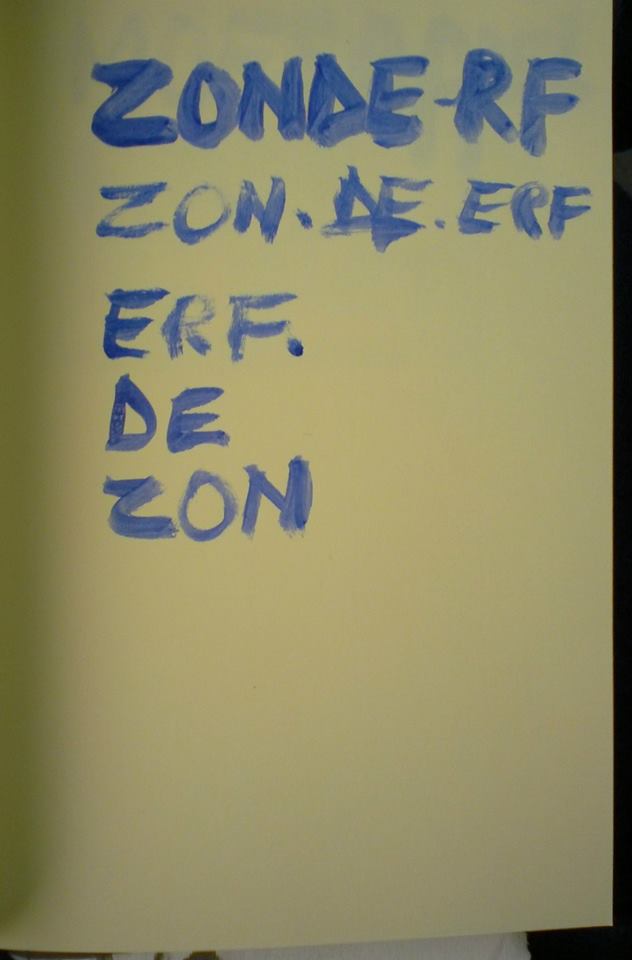 ZONDE-RF
ZON.DE.ERF
ERF.
DE
ZON